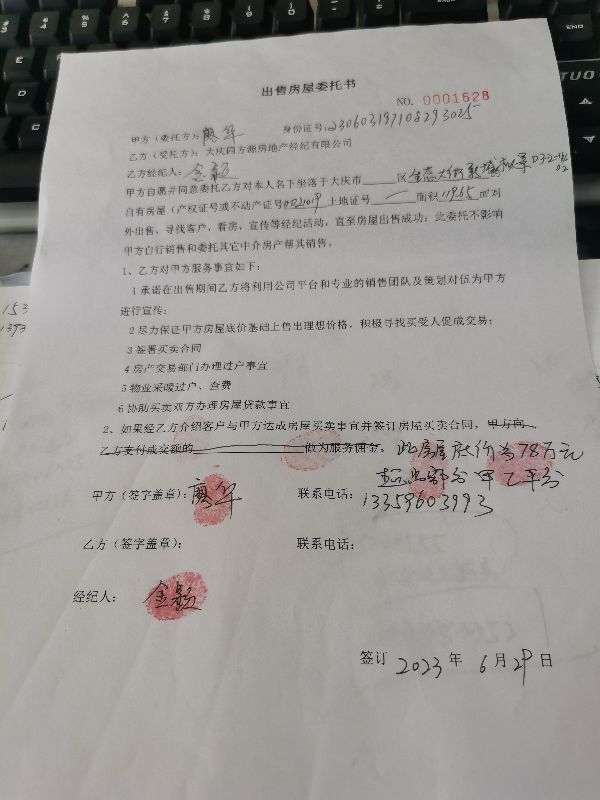 出售房屋委托书
NO. 0001628
甲方（委托方）：廖华 身份证号：230603197108293025
乙方（受托方）：大庆四方源房地产经纪有限公司
乙方经纪人：金颖
甲方自愿并同意委托乙方对本人名下坐落于大庆市 区
自有房屋（产权证号或不动产证号 土地证号 一 面积 119.65 m²对
外出售、寻找客户，看房、宣传等经纪活动，直至房屋出售成功；此委托不影响
甲方自行销售和委托其它中介房产帮其销售。
1、乙方对甲方服务事宜如下：
1 承诺在出售期间乙方将利用公司平台和专业的销售团队及策划对伍为甲方
进行宣传；
2 尽力保证甲方房屋底价基础上售出理想价格，积极寻找买受人促成交易；
3 签署买卖合同
4 房产交易部门办理过户事宜
5 物业采暖过户、查费
6 协助买卖双方办理房屋贷款事宜
2、如果经乙方介绍客户与甲方达成房屋买卖事宜并签订房屋买卖合同，甲方向
乙方支付成交额的 做为服务佣金。此房屋底价为78万元
超出部分甲乙平分
甲方（签字盖章）：廖华 联系电话：13359603993
乙方（签字盖章）： 联系电话：
经纪人： 金颖
签订 2023 年 6 月 29 日